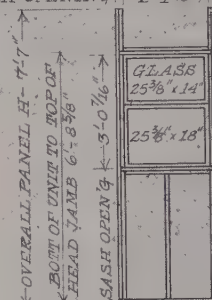 OVERALL PANEL H - 7'-7"
BOTT OF UNIT TO TOP OF
HEAD JAMB 6'-8 5/8"
SASH OPEN'G 3'-0 7/16"
GLASS
25 3/8" x 14"
25 3/8" x 18"